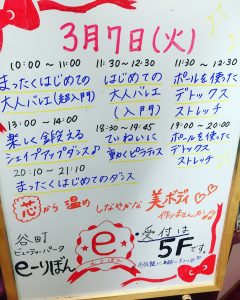 3月7日(火)
10:00~11:00 11:30~12:30 11:30~12:30
まったくはじめての はじめての ポールを使った
大人バレエ(超入門) 大人バレエ デトックス
(入門) ストレッチ
13:00~14:00 18:30~19:45 19:00~20:00
楽しく鍛える ていねいに ポールを使った
シェイプアップダンス♪ 動くピラティス デトックス
ストレッチ
20:10~21:10
まったくはじめてのダンス
心から温の しなやかな 美ボディ♡♡
作りませんか
谷町
ビューティーパーク
e-りぼん
e
e-りぼん
受付は
5Fです。